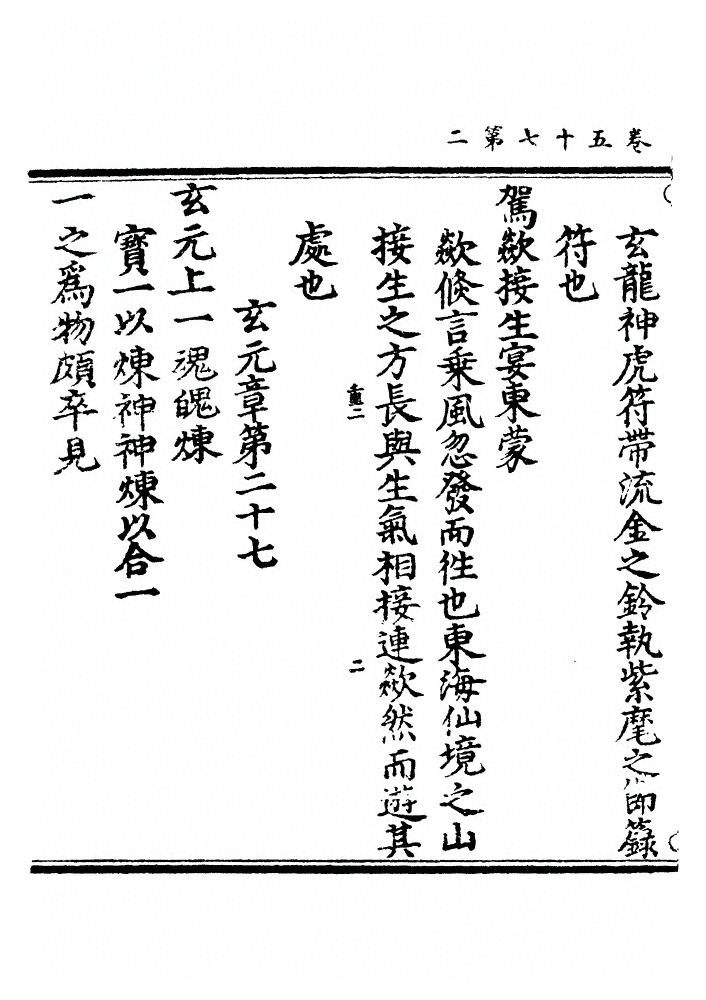 卷五十七第二
玄龍神虎符帶流金之鈴執紫麾之節籙
符也
駕歘接生宴東蒙
歘倏言乗風忽發而徃也東海仙境之山
接生之方長與生氣相接連歘然而遊其
重二
二
處也
玄元章第二十七
玄元上一魂魄煉
寳一以煉神神煉以合一
一之爲物頗卒見